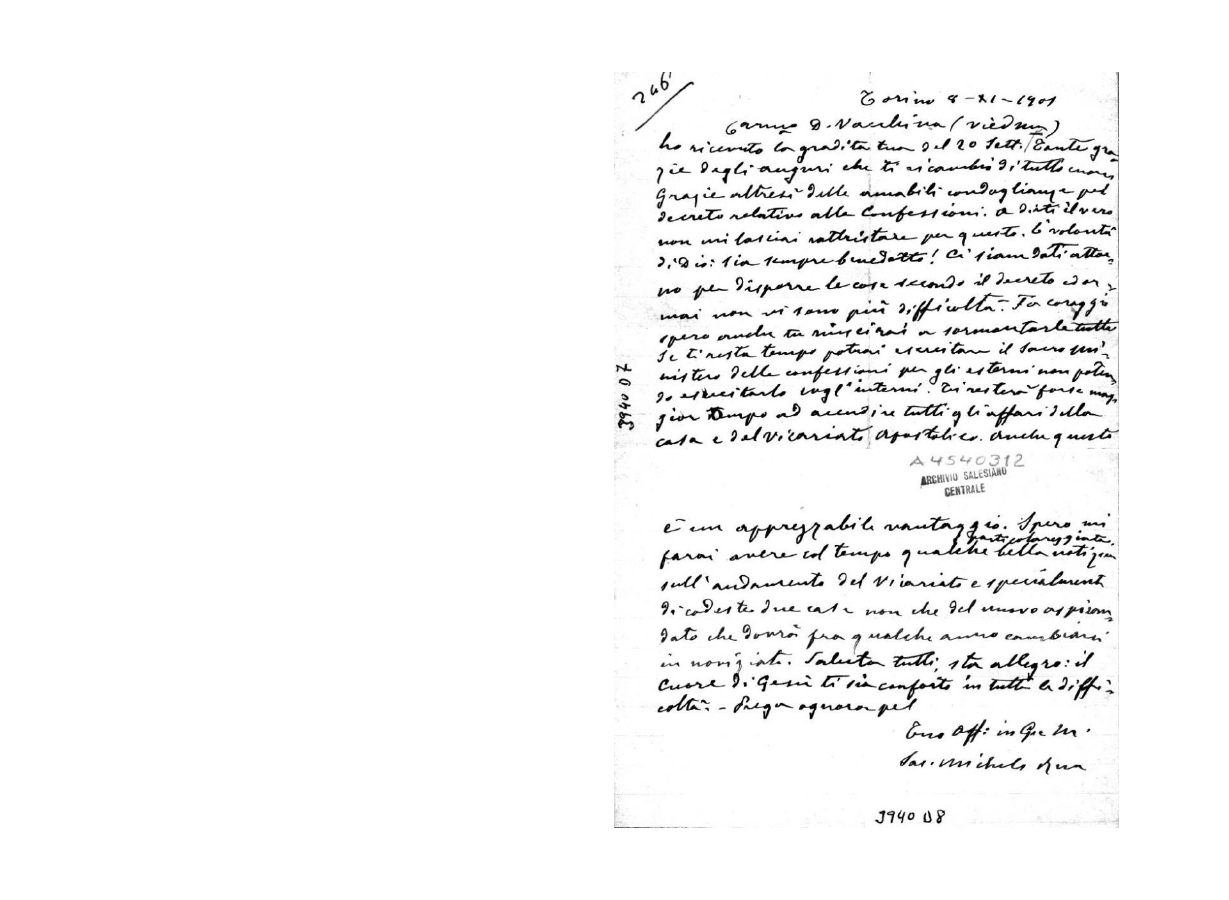 246
Torino 8-XI-1901
Carmo D. Vacchina (Viedma)
ho ricevuto la gradita tua del 20 Sett. Tante gra-
zie degli auguri che ti ricambio di tutto cuore
Grazie altresì delle amabili condoglianze pel
decreto relativo alle Confessioni. A dirti il vero
non mi lasciai rattristare per questo. È volontà
di Dio: sia sempre benedetto! Ci siam dati attor-
no per disporre le cose secondo il decreto ed or-
mai non vi sono più difficoltà. Fa coraggio
spero anche tu riuscirai a sormontarle tutte
Se ti resta tempo potrai esercitare il Sacro Mi-
nistero delle confessioni per gli esterni non poten-
do esercitarlo cogl'interni. Ti resterà forse mag-
gior tempo ad accudire tutti gli affari della
casa e del Vicariato Apostolico. Anche questo
3940 D7
A4540312
ARCHIVIO SALESIANO
CENTRALE
è un apprezzabile vantaggio. Spero mi
particolareggiata
farai avere col tempo qualche bella notizia
sull'andamento del Vicariato e specialmente
di codeste due case non che del nuovo aspiran-
dato che dovrà fra qualche anno cambiarsi
in noviziato. Saluta tutti, sta allegro: il
Cuore di Gesù ti sia conforto in tutte le diffi-
coltà. - Prega ognora pel
Tuo Aff: in G e M.
Sac. Michele Rua
3940 D8